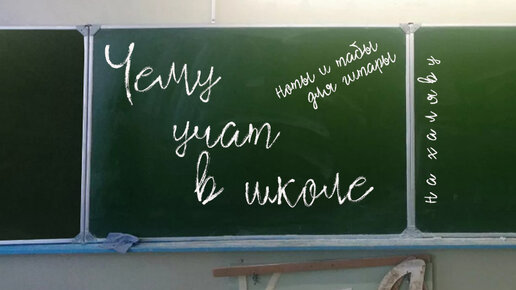 Чему
учат
в школе
ноты и табы
для гитары
на халяву